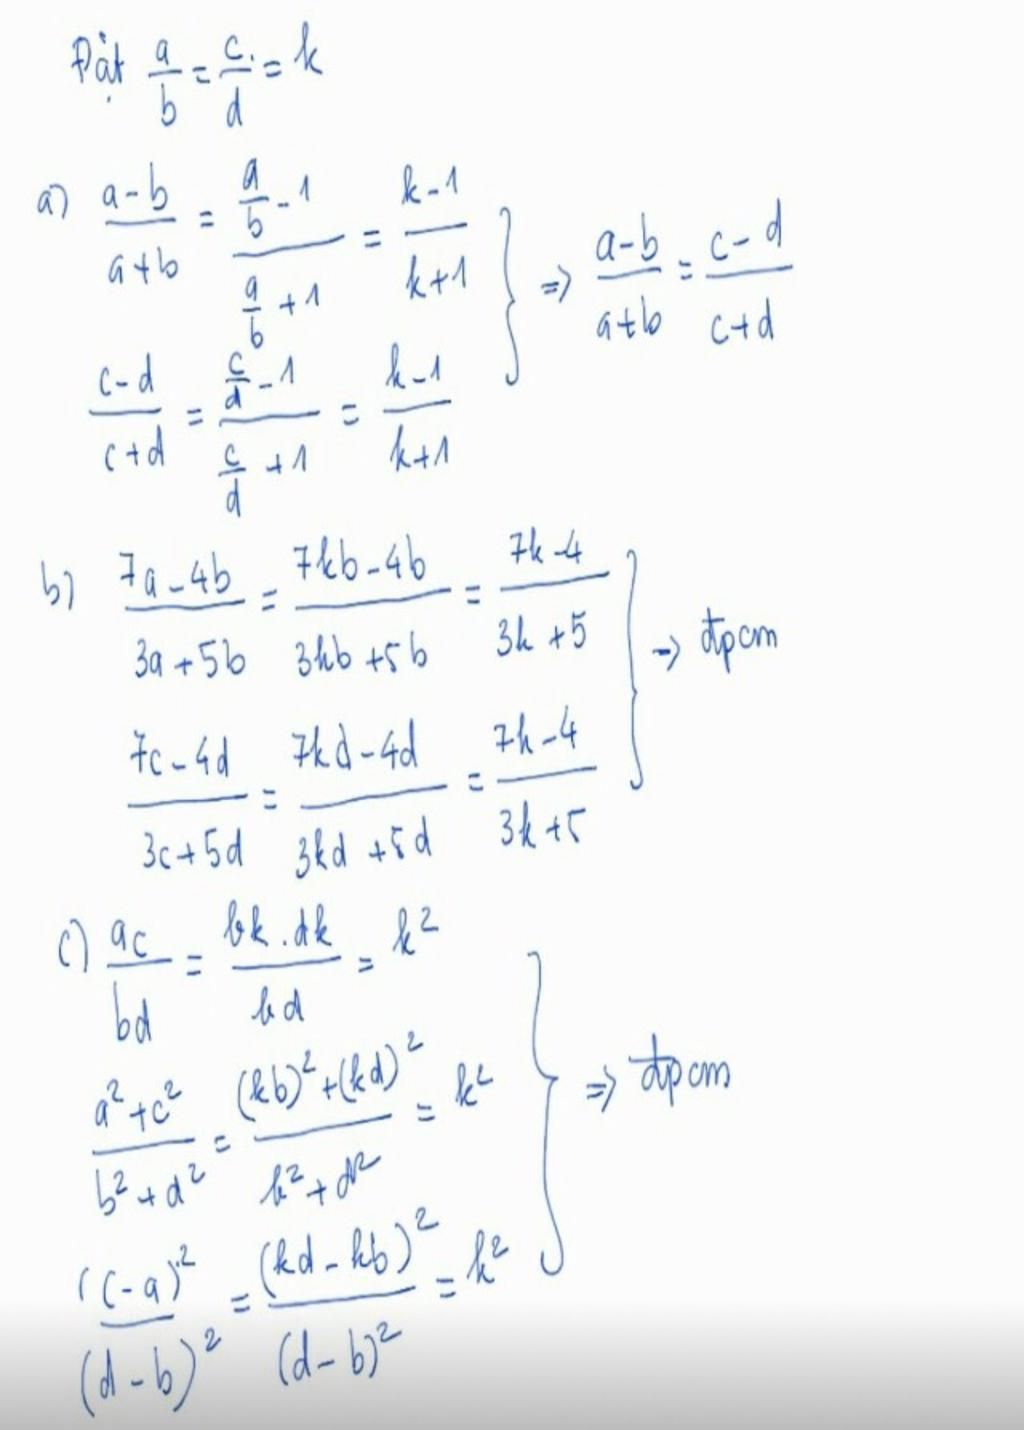 Đặt a/b = c/d = k
a) (a-b)/(a+b) = (a/b - 1)/(a/b + 1) = (k-1)/(k+1)
(c-d)/(c+d) = (c/d - 1)/(c/d + 1) = (k-1)/(k+1)
} => (a-b)/(a+b) = (c-d)/(c+d)
b) (7a-4b)/(3a+5b) = (7kb-4b)/(3kb+5b) = (7k-4)/(3k+5)
(7c-4d)/(3c+5d) = (7kd-4d)/(3kd+5d) = (7k-4)/(3k+5)
} → đpcm
c) ac/bd = bk.dk/bd = k²
(a²+c²)/(b²+d²) = ((kb)²+(kd)²)/(b²+d²) = k²
(c-a)²/(d-b)² = (kd-kb)²/(d-b)² = k²
} => đpcm